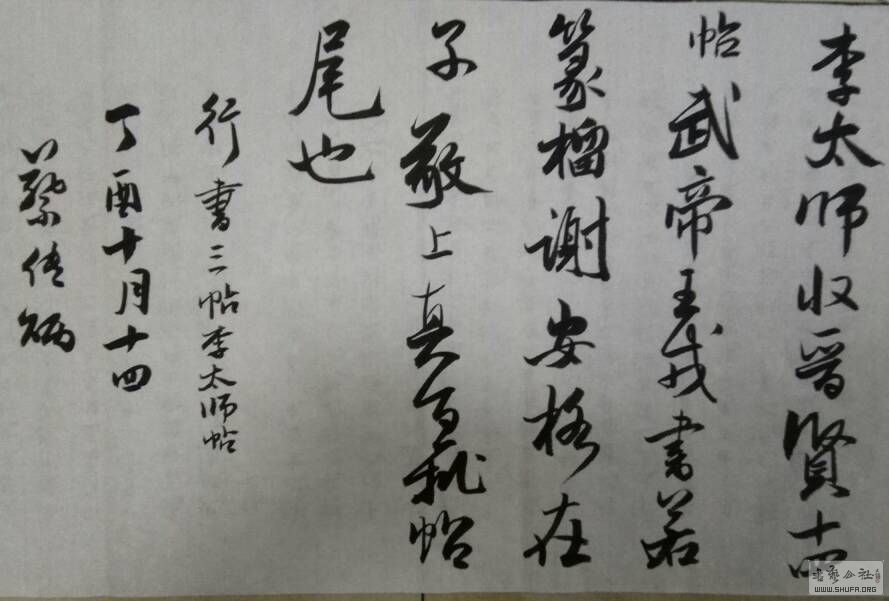 李太师收晋贤十四
帖武帝王戎书若
篆榴谢安格在
子敬上真百衲帖
尾也
行书三帖李太师帖
丁酉十月十四
蔡传炳
书艺公社
WWW.SHUFA.ORG